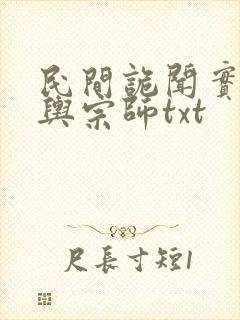 民間詭聞實
輿宗師txt
尺長寸短1